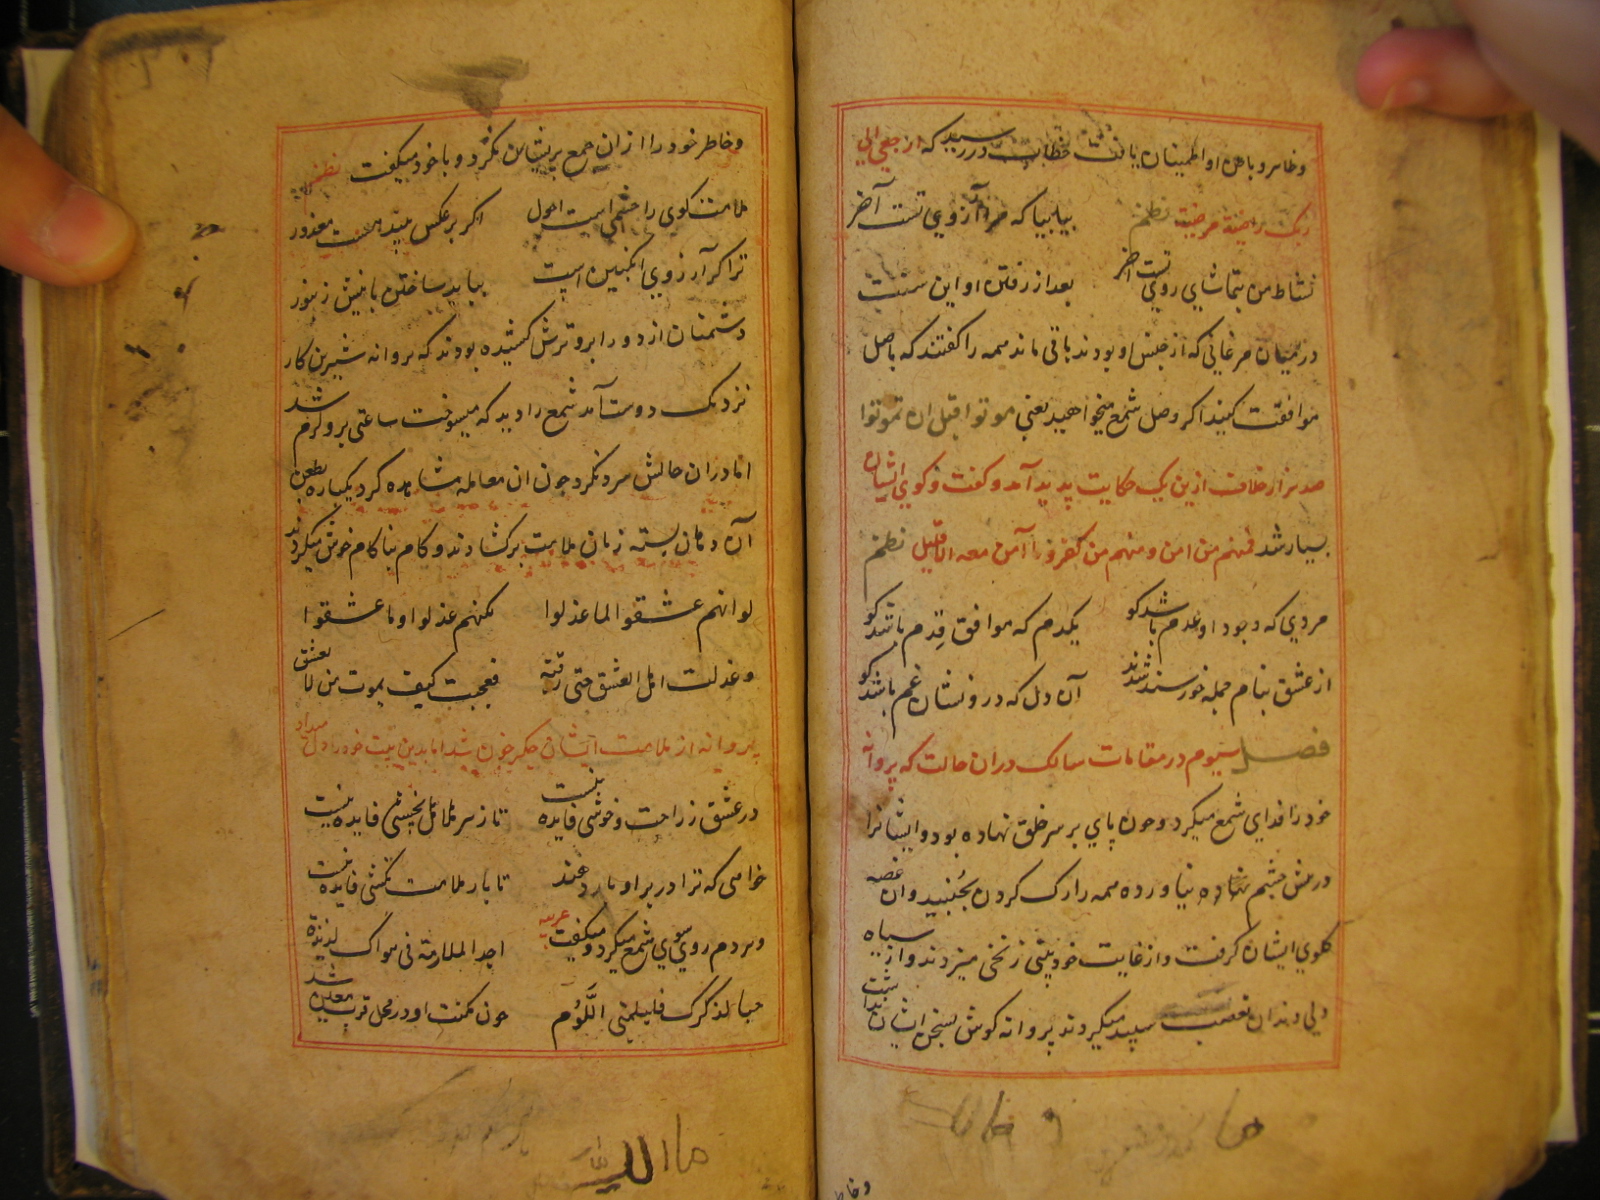 وظاهر و باطن او اطمینان یافت خطاب در رسید که ارجعی الی
ربک راضیة مرضیة نظم بیا بیا که مرا آرزوی تست آخر
نشاط من بتماشای روی تست آخر بعد از رفتن او این سنت
در میان مرغانی که از جنس او بودند باقی ماند همه را گفتند که با اصل
موافقت کنید اگر وصل شمع میخواهید یعنی موتوا قبل ان تموتوا
صد هزار خلافت ازین یک حکایت پدید آمد و گفت و کوی ایشان
بسیار شد فمنهم من امن و منهم من کفر و ما آمن معه الا قلیل نظم
مردی که وجود او عدم باشد کو یکدم که موافق قدم باشد کو
از عشق بنام جمله خورسند شدند آن دل که درو نشان غم باشد کو
فصل سیوم در مقامات سالک در ان حالت که پروانه
خود را فدای شمع میکرد و چون پای بر سر خلق نهاده بود و ایشانرا
در پیش چشم نهاده نیاورده همه را رک کردن بجنبید و ان غصه
کلوی ایشان کرفت و از غایت خود بینی زنخی میزدند و از سیاه
دلی دندان تعصب سپید میکردند پروانه کوش بسخن ایشان نداشت
وخاطر خود را از ان جمع پریشان نکرد و با خود میکفت نظم
ملامت کوی را چشمی است احول اکر بر عکس بیند هست معذور
ترا کر آرزوی انکبین است بباید ساختن با نیش زنبور
دشمنان از دور ابرو ترش کشیده بودند که پروانه شیرین کار
نزدیک دوست آمد شمع را دید که میسوخت ساعتی برو کرم شد
اما در ان حالش سرد نکرد چون ان معامله مشاهده کرد یکباره بطعن
آن دهان بسته زبان ملامت برکشادند و کام بناکام خوش میکردند
لو انهم عشقوا لما عذلوا لکنهم عذلوا وما عشقوا
وعذلت اهل العشق حتی ذقته فعجبت کیف یموت من لا یعشق
پروانه از ملامت ایشان جکر خون شد اما بدین بیت خود را دل میداد
در عشق ز راحت و خوشی فایده نیست تا زهر هلاهل نچشی فایده نیست
خواهی که ترا در بر او بار دهند تا بار ملامت نکشی فایده نیست
و هر دم روی سوی شمع میکرد و میکفت عربیه اجد الملامة فی هواک لذیذة
حبا لذکرک فلیلمنی اللوم چون نکمت او در محل قرب معلن شد